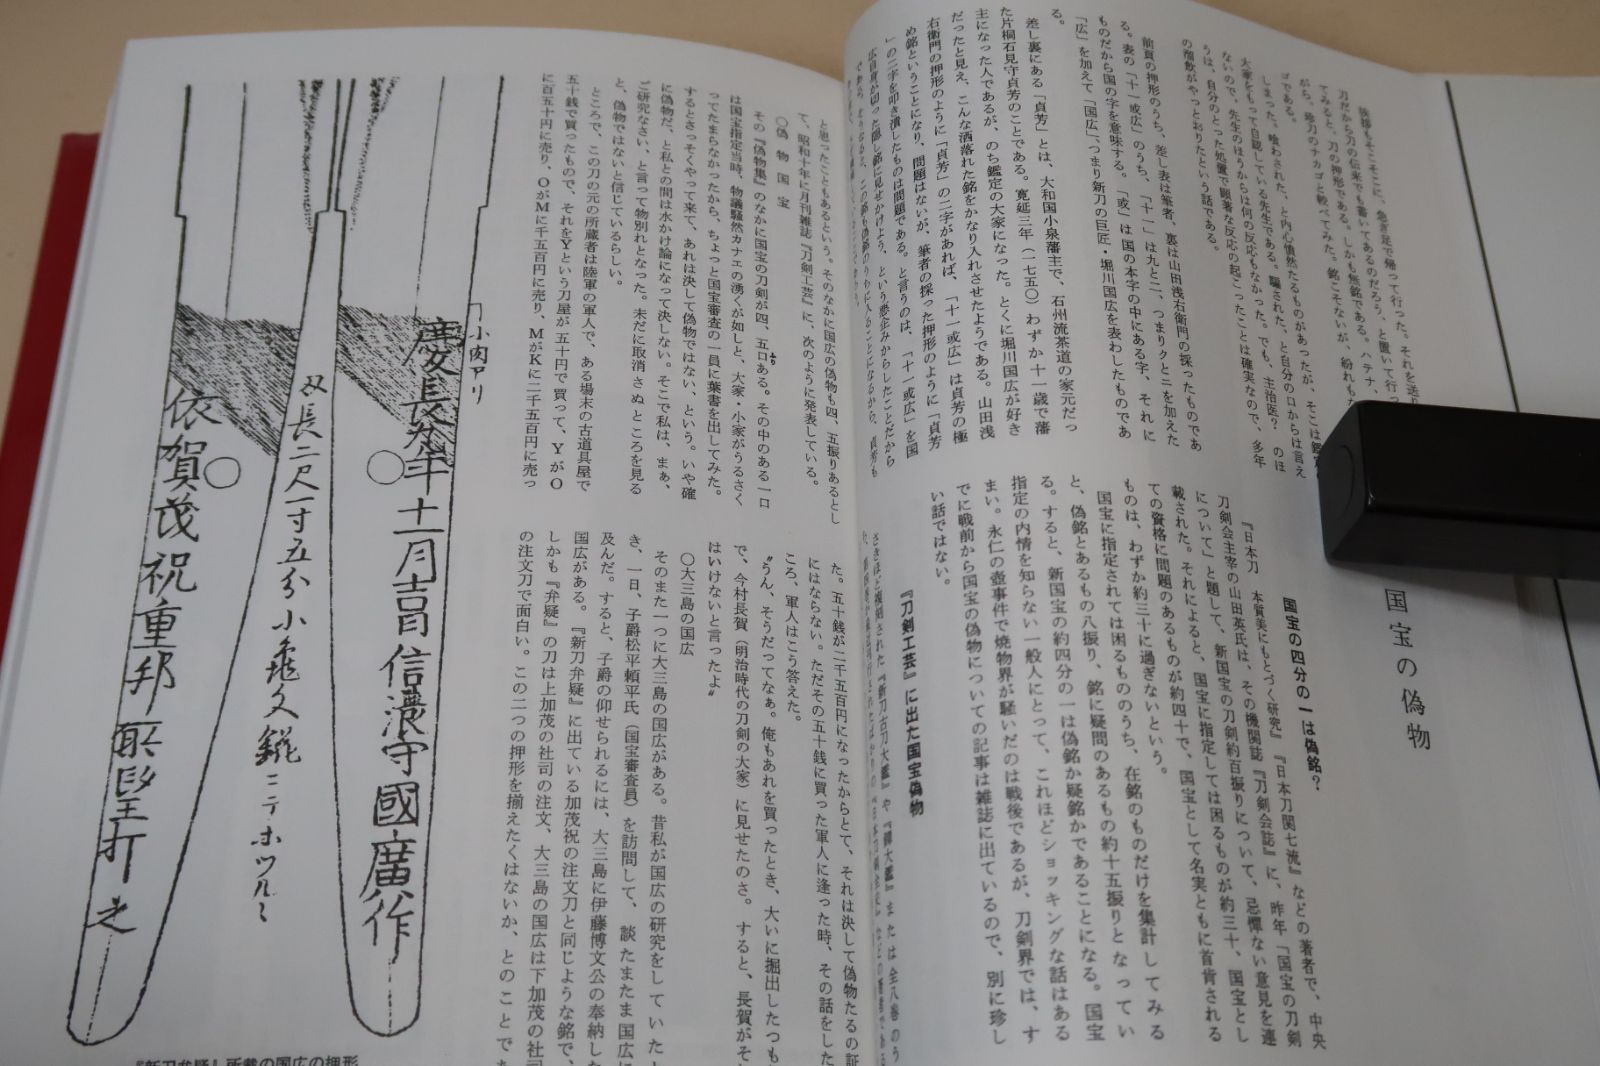 挨拶もそこそこに、急ぎ足で帰って行った。それを送り
刀だから刀の伝来でも書いてあるのだろう、と置いて行っ
てみると、刀の押形である。しかも無銘である。ハテナ、
がら、珍刀のナカゴと較べてみた。銘こそないが、紛れもな
ゴである。
しまった、喰わされた、と内心憤然たるものがあったが、そこは鑑定
大家をもって自認している先生である。騙された、と自分の口からは言え
ないので、先生のほうからは何の反応もなかった。でも、主治医？　のほ
うは、自分のとった処置で顕著な反応の起こったことは確実なので、多年
の溜飲がやっとおりたという話である。
前頁の押形のうち、差し表は筆者、裏は山田浅右衛門の採ったものであ
る。表の「十一或広」のうち、「十一」は九と二、つまりクとニを加えた
ものだから国の字を意味する。「或」は国の本字の中にある字、それに
「広」を加えて「国広」、つまり新刀の巨匠・堀川国広を表わしたものであ
る。
差し裏にある「貞芳」とは、大和国小泉藩主で、石州流茶道の家元だっ
た片桐石見守貞芳のことである。寛延三年（一七五〇）わずか十一歳で藩
主になった人であるが、のち鑑定の大家になった。とくに堀川国広が好き
だったと見え、こんな洒落れた銘をかなり入れさせたようである。山田浅
右衛門の押形のように「貞芳」の二字があれば、「十一或広」は貞芳の極
め銘ということになり、問題はないが、筆者の採った押形のように「貞芳
」の二字を叩き潰したものは問題である。と言うのは、「十一或広」を国
広自身が切った隠し銘に見せかけよう、という悪企みからしたことだから
国宝の偽物
国宝の四分の一は偽銘？
『日本刀　本質美にもとづく研究』『日本刀関七流』などの著者で、中央
刀剣会主宰の山田英氏は、その機関誌『刀剣会誌』に、昨年「国宝の刀剣
について」と題して、新国宝の刀剣約百振りについて、忌憚ない意見を連
載された。それによると、国宝に指定しては困るものが約三十、国宝とし
ての資格に問題のあるものが約四十で、国宝として名実ともに首肯される
ものは、わずか約三十に過ぎないという。
国宝に指定されては困るもののうち、在銘のものだけを集計してみる
と、偽銘とあるもの八振り、銘に疑問のあるもの約十五振りとなってい
る。すると、新国宝の約四分の一は偽銘か疑銘かであることになる。国宝
指定の内情を知らない一般人にとって、これほどショッキングな話はある
まい。永仁の壺事件で焼物界が騒いだのは戦後であるが、刀剣界では、す
でに戦前から国宝の偽物についての記事は雑誌に出ているので、別に珍し
い話ではない。
『刀剣工芸』に出た国宝偽物
さきほど複刻された『新刀古刀大鑑』や『鐔大鑑』または全八巻のう
と思ったこともあるという。そのなかに国広の偽物も四、五振りあるとし
て、昭和十年に月刊雑誌『刀剣工芸』に、次のように発表している。
〇偽物国宝
その『偽物集』のなかに国宝の刀剣が四、五口ある。その中のある一口
は国宝指定当時、物議騒然カナエの湧くが如しと、大家・小家がうるさく
ってたまらなかったから、ちょっと国宝審査の一員に葉書を出してみた。
するとさっそくやって来て、あれは決して偽物ではない、という。いや確
に偽物だ、と私との間は水かけ論になって決しない。そこで私は、まぁ、
ご研究なさい、と言って物別れとなった。未だに取消さぬところを見る
と、偽物ではないと信じているらしい。
ところで、この刀の元の所蔵者は陸軍の軍人で、ある場末の古道具屋で
五十銭で買ったもので、それをYという刀屋が五十円で買って、YがO
に百五十円に売り、OがMに千五百円に売り、MがKに二千五百円に売っ
た。五十銭が二千五百円になったからとて、それは決して偽物たるの証
にはならない。ただその五十銭に買った軍人に逢った時、その話をした
ころ、軍人はこう答えた。
〝うん、そうだってなぁ。俺もあれを買ったとき、大いに掘出したつも
で、今村長賀（明治時代の刀剣の大家）に見せたのさ。すると、長賀がそ
はいけないと言ったよ〟
〇大三島の国広
そのまた一つに大三島の国広がある。昔私が国広の研究をしていた
き、一日、子爵松平頼平氏（国宝審査員）を訪問して、談たまたま国広に
及んだ。すると、子爵の仰せられるには、大三島に伊藤博文公の奉納した
国広がある。『新刀弁疑』に出ている加茂祝の注文刀と同じような銘で、
しかも『弁疑』の刀は上加茂の社司の注文、大三島の国広は下加茂の社司
の注文刀で面白い。この二つの押形を揃えたくはないか、とのことでた
小肉アリ
慶長九年十一月吉日信濃守國廣作
刃長二尺一寸五分
依賀茂祝重邦所望打之
『新刀弁疑』所載の国広の押形